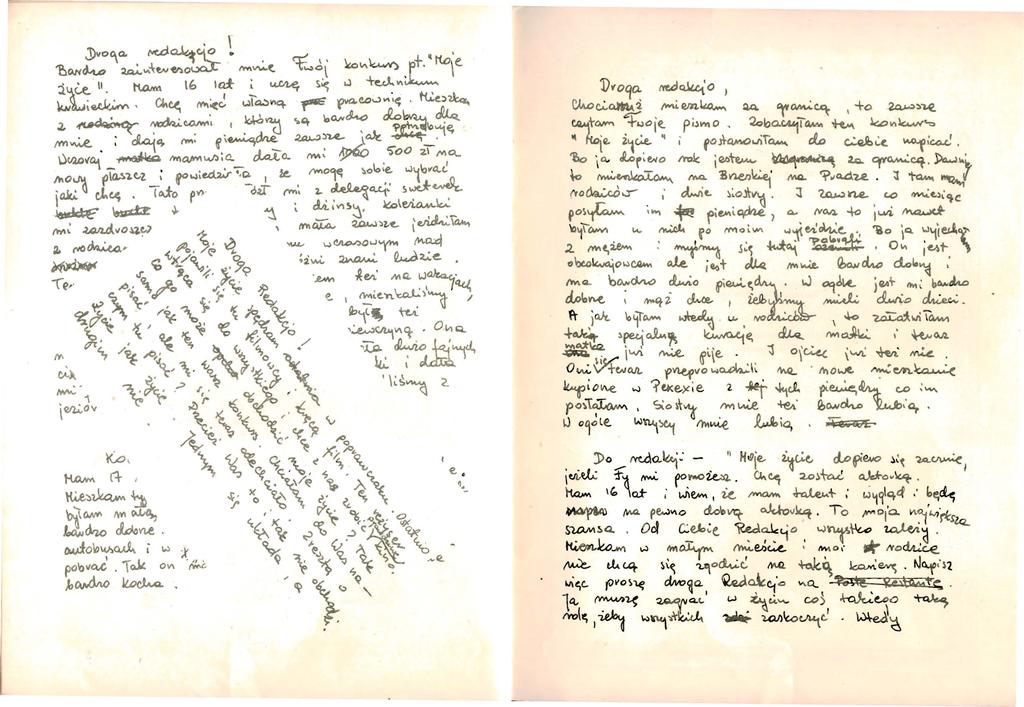 Droga redakcjo !
Bardzo zainteresował mnie Twój konkurs pt. "Moje
życie". Mam 16 lat i uczę się w technikum
krawieckim. Chcę mieć własną pracownię. Mieszkam
z rodzicami, którzy są bardzo dobrzy dla
mnie i dają mi pieniądze zawsze jak potrzebuję
Wczoraj matka mamusia dała mi 1000 500 zł na
nowy płaszcz i powiedziała, że mogę sobie wybrać
jaki chcę. Tato prz ózł mi z delegacji sweterek
i dżinsy. koleżanki
mi zazdroszcz mała zawsze jeździłam
z rodzica wczasowym nad
żni znani ludzie.
Te em też na wakacjach,
e, mieszkaliśmy
była też
n iewczyną. Ona
cię ła dużo fajnych
mi ki i dała
jezior liśmy z
Ko.
Mam 17
Mieszkam ty
byłam mała,
bardzo dobre.
autobusach i w
pobrać. Tak on mi
bardzo kocha.
Droga Redakcjo !
Moje życie spędzam w poprawczaku. Ostatnio
pojawił się tu filmowy i kręcą film. Ten reżyser
wtrąca się do wszystkiego i chce z nas zrobić kino.
Co go może obchodzić moje życie? Tak
samo jak ten wasz konkurs. Chciałam do Was na-
pisać, ale mi się teraz odechciało. Zresztą o
czym tu pisać? Przecież Was to i tak nie obchodzi.
Życie jak życie. Jednym się układa, a
drugim nie
Droga redakcjo,
Chociaż mieszkam za granicą, to zawsze
czytam Twoje pismo. Zobaczyłam ten konkurs
"Moje życie" i postanowiłam do ciebie napisać.
Bo ja dopiero rok jestem za granicą. Dawniej
to mieszkałam na Brzeskiej na Pradze. I tam mam
rodziców i dwie siostry. I zawsze co miesiąc
posyłam im pieniądze, a raz to już nawet
byłam u nich po moim wyjeździe. Bo ja wyjechałam
z mężem i myśmy się tutaj pobrali. On jest
obcokrajowcem ale jest dla mnie bardzo dobry i
ma bardzo dużo pieniędzy. W ogóle jest mi bardzo
dobrze i mąż chce, żebyśmy mieli dużo dzieci.
A jak byłam wtedy u rodziców, to załatwiłam
taką specjalną kurację dla matki i teraz
matka już nie pije. I ojciec już też nie.
Oni się teraz przeprowadzili na nowe mieszkanie
kupione w Pekexie z tej tych pieniędzy co im
posłałam. Siostry mnie też bardzo lubią.
W ogóle wszyscy mnie lubią. Teraz
Do redakcji – "Moje życie dopiero się zacznie,
jeżeli Ty mi pomożesz. Chcę zostać aktorką.
Mam 16 lat i wiem, że mam talent i wygląd i będę
na pewno dobrą aktorką. To moja największa
szansa. Od Ciebie Redakcjo wszystko zależy.
Mieszkam w małym mieście i moi rodzice
nie chcą się zgodzić na taką karierę. Napisz
więc proszę droga Redakcjo na Poste Restante.
Ja muszę zagrać w życiu coś takiego taką
rolę, żeby wszystkich zaskoczyć. Wtedy